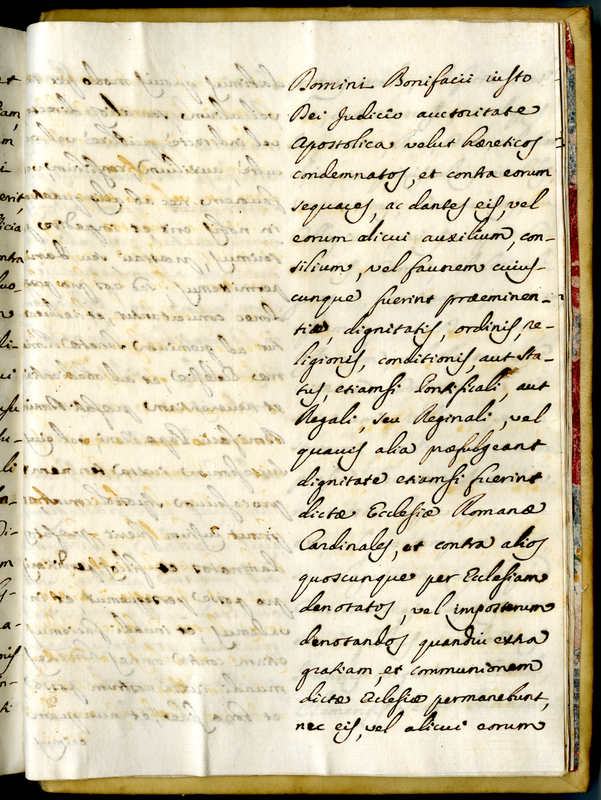 Domini Bonifacii iusto
Dei Judicio auctoritate
Apostolica velut hæreticos
condemnatos, et contra eorum
sequaces, ac dantes eis, vel
eorum alicui auxilium, con-
silium, vel fauorem cuius-
cunque fuerint præeminen-
tiæ, dignitatis, ordinis, re-
ligionis, conditionis, aut sta-
tus, etiamsi Pontificali, aut
Regali, seu Reginali, vel
quauis alia præfulgeant
dignitate etiamsi fuerint
dictæ Ecclesiæ Romanæ
Cardinales, et contra alios
quoscunque per Ecclesiam
denotatos, vel imposterum
denotandos quandiu extra
gratiam, et communionem
dictæ Ecclesiæ permanebunt,
nec eis, vel alicui eorum